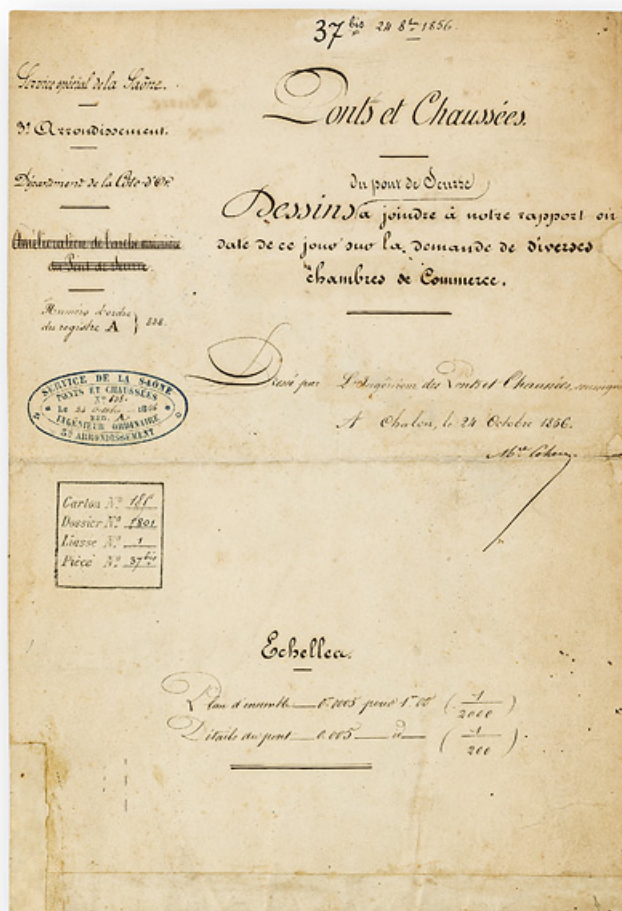 37 bis 24 8bre 1856.
Service spécial de la Saône.
3e Arrondissement.
Département de la Côte-d'Or.
Amélioration de l'arche marinière
du Pont de Seurre.
Numéro d'ordre
du registre A
SERVICE DE LA SAÔNE
PONTS ET CHAUSSÉES
Le 24 Octobre 1856
REG. A.
INGÉNIEUR ORDINAIRE
3e ARRONDISSEMENT
Carton No
Dossier No 1801
Liasse No 1
Pièce No 37 bis
Ponts et Chaussées.
du pont de Seurre
Dessins à joindre à notre rapport en
date de ce jour sur la demande de diverses
chambres de Commerce.
Dressé par L'Ingénieur des Ponts et Chaussées, soussigné
A Chalon, le 24 Octobre 1856.
Echelles.
Plan d'ensemble 0m.0005 pour 1m.00 (1/2000)
Détails du pont 0.005 id (1/200)